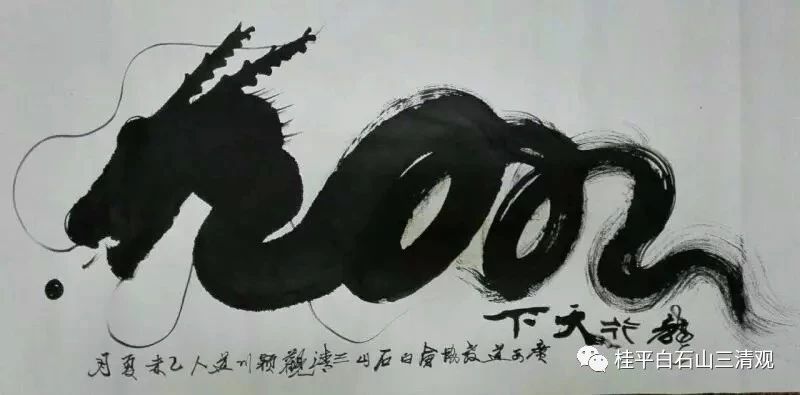 龍行天下
廣西道教協會白石山三清觀颖川道人乙未夏月
桂平白石山三清观